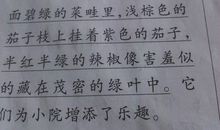 面碧绿的菜畦里,浅棕色的
茄子枝上挂着紫色的茄子,
半红半绿的辣椒像害羞似
的藏在茂密的绿叶中。它
们为小院增添了乐趣。